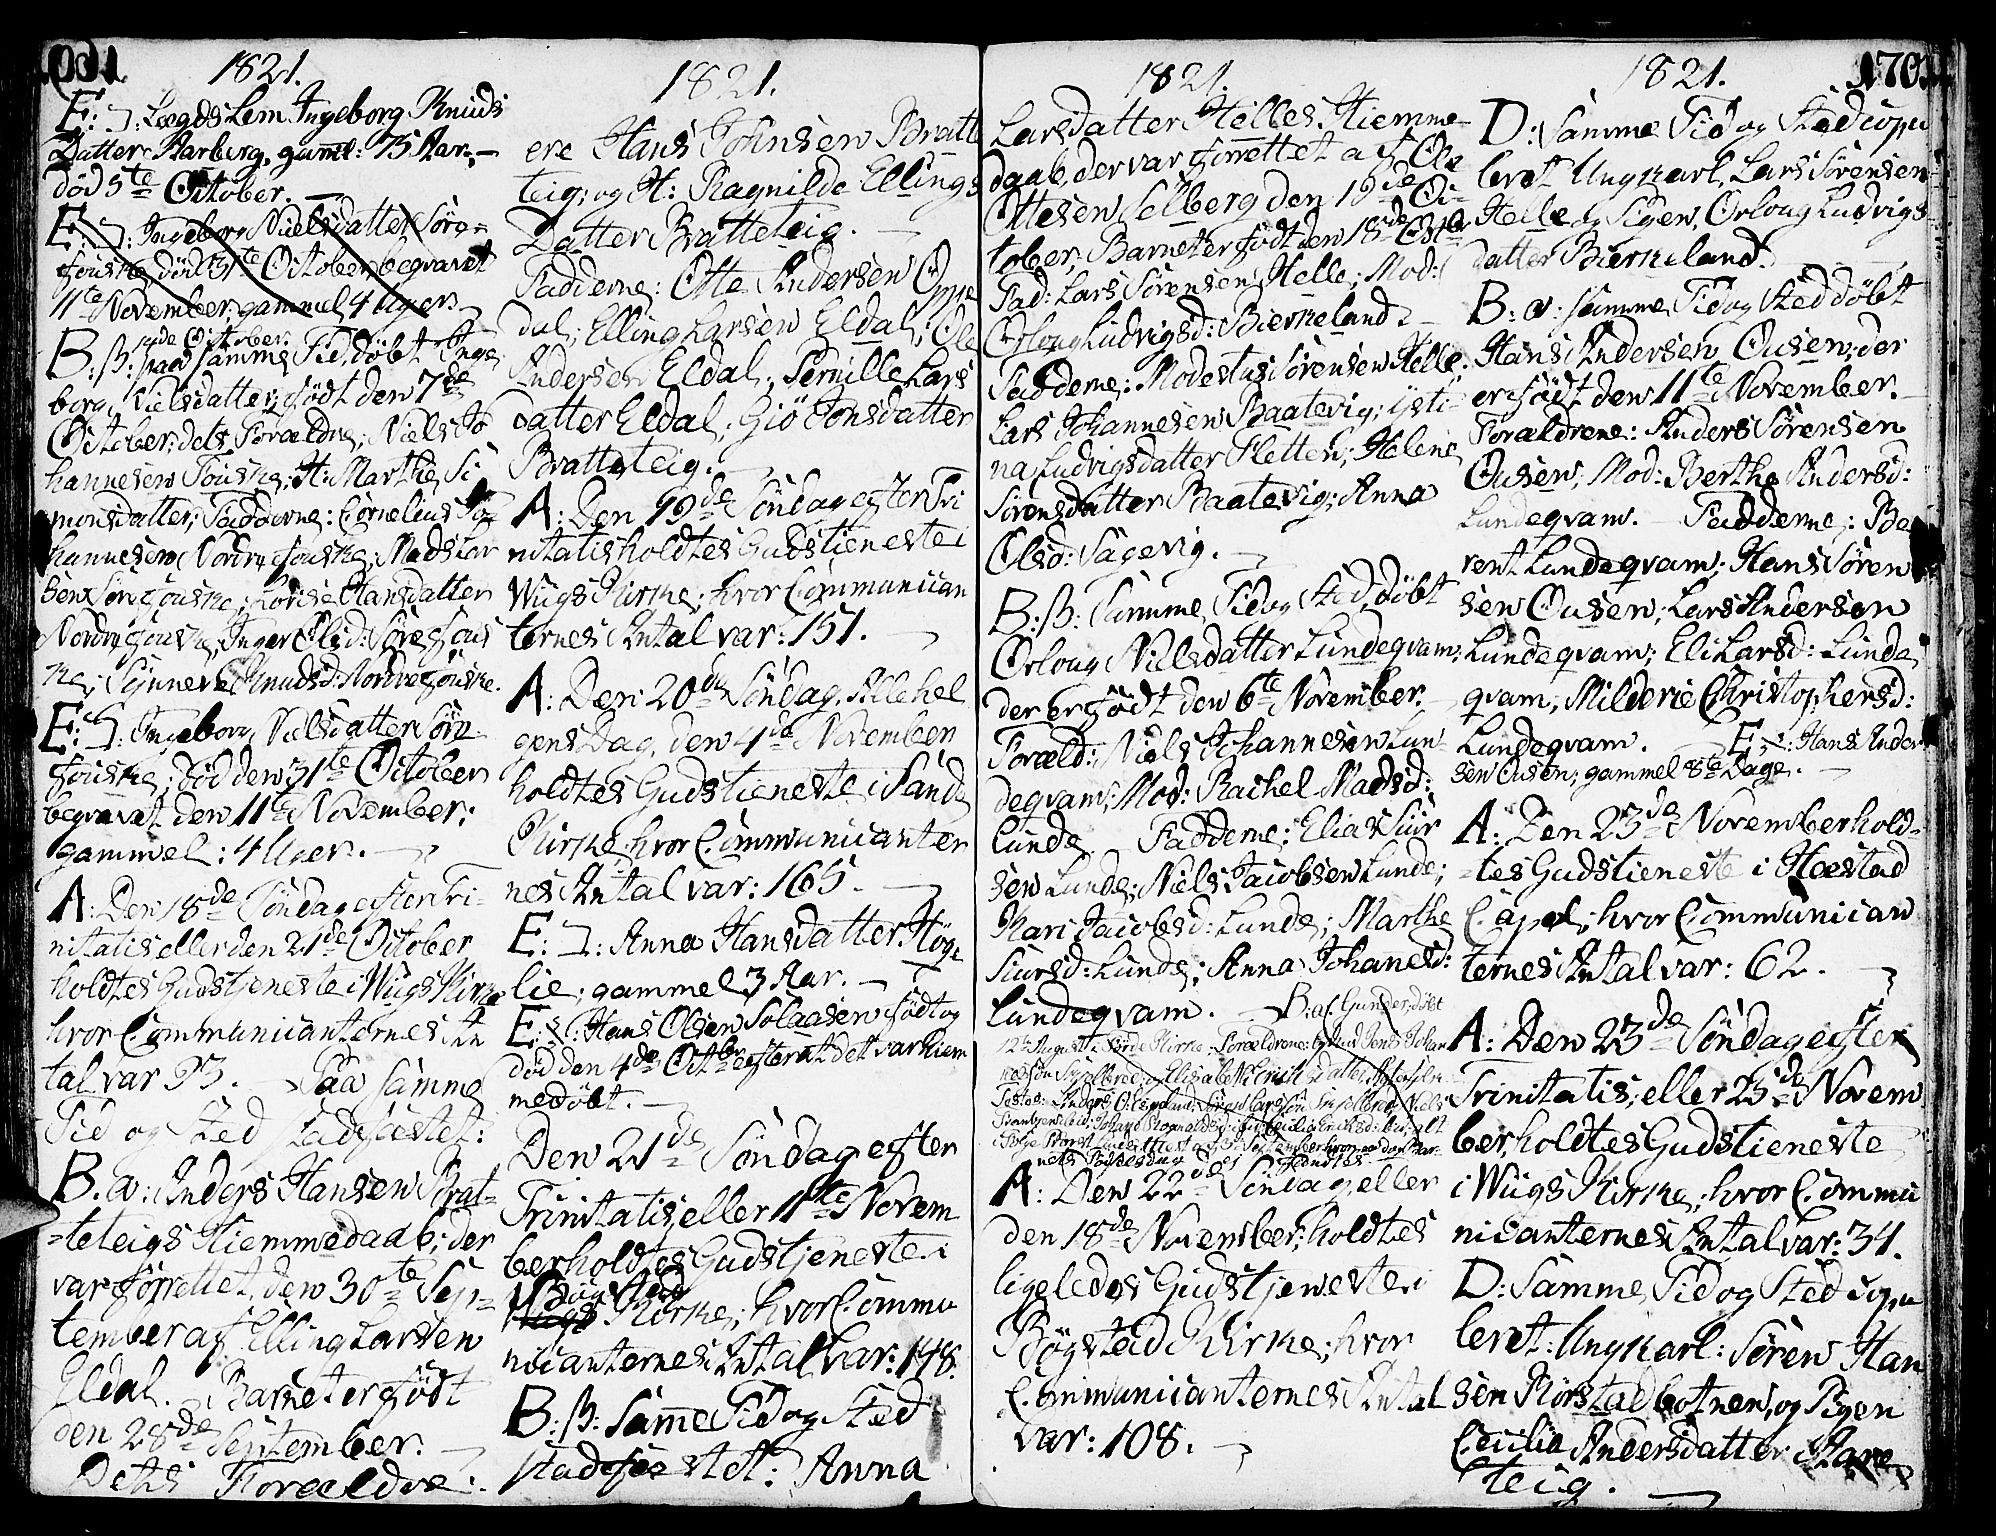 1821.
E: ⊐: Lægds Lem Ingeborg Knuds
Datter Aarberg, gaml: 75 Aar. —
død 5te October. —
E: ⊐: Ingeborg Nielsdatter Söre
fouske, död 31te October, begravet
11te November; gammel 4 Uger.
14de October.
B: β: paa samme Tid döbt Inge
borg Nielsdatter; født den 7de
October; dets Forældre; Niels Jo
hannesen Fouske; H: Marthe Si
monsdatter; Fadderne: Cornelius Jo
hannesen Nordre fouske; Mads Lar
sen Söre fouske; Lovise Hansdatter
Nordre fouske; Inger Olsd: Söre fous
ke; Synneve Knudsd: Nordre fouske.
E: ⊐: Ingeborg Nielsdatter Söre
fouske; död den 31te October
begravet den 11te November;
gammel: 4 Uger. —
A: Den 18de Söndag efter Tri-
nitatis eller den 21de October
holdtes Gudstjeneste i Wiigs Kirke
hvor Communicanternes An
tal var 93. — Paa samme
Tid og Sted stadfæstet:
B. a: Anders Hansen Brat-
-teteigs Hiemmedaab; der
var forrettet, den 30te Sep-
tember af Elling Larsen
Eldal. Barnet er födt
den 28de September. —
Dets Forældre:
1821.
ere Hans Johnsen Bratte
teig; og H: Ragnilde Ellings
Datter Bratteteig. —
Fadderne: Otte Andersen Oppe
dal; Elling Larsen Eldal; Ole
Andersen Eldal; Pernille Lars
datter Eldal; Giö Jonsdatter
Bratteteig. —
A: Den 19de Söndag efter Tri
nitatis holdtes Gudstieneste i
Wiigs Kirke; hvor Communican
ternes Antal var: 151. —
A: Den 20de Söndag. Allehel
gens Dag, den 4de November
holdtes Gudstieneste i Sande
Kirke hvor Communicanter
nes Antal var: 165. —
E: ⊐: Anna Hansdatter Höge
lie; gammel 3 Aar. —
E: Hans Olsen Solaasen födt og
död den 4de Octbr efter at det var hiem
medöbt. —
Den 21de Söndag efter
Trinitatis, eller 11te Novem
ber holdtes Gudstjeneste i
Bögstad
Kirke; hvor Commu
nicanternes Antal var: 148.
B: β: Samme Tid og Sted
stadfæstet: Anna
1821.
Larsdatter Helles Hiemme-
daab, der var forrettet af Ole
Ottesen Selberg den 19de Oc-
tober; Barnet er födt den 18de Octbr
Fad: Lars Sörensen Helle; Mod:
Orloug Ludvigsd: Bierkeland. —
Fadderne: Modestus Sörensen Helle.
Lars Johannesen Baatevig; Christi-
na Ludvigsdatter Fletten; Helene
Sörensdatter Baatevig; Anna
Olsd: Sagevig. —
B: β: Samme Tid og Sted döbt
Orloug Nielsdatter Lundeqvam;
der er födt den 6te November. —
Foræld: Niels Johannesen Lun-
deqvam; Mod: Rachel Madsd:
Lunde. Fadderne: Elias Siur
sen Lunde; Niels Jacobsen Lunde;
Kari Jacobsd: Lunde; Marthe
Siursd: Lunde; Anna Johanesd:
Lundeqvam. — B: a: Gunder, döbt
12te August i Förde Kirke; Forældrene:
A: Den 22de Söndag, eller
den 18de November; holdtes
ligeledes Gudstjeneste i
Bögstad Kirke; hvor
Communicanternes Antal
var: 108. —
1821.
170
D: Samme Tid og Sted copu
leret Ungkarl, Lars Sörensen
Helle og Pigen, Orloug Ludvigs-
datter Bierkeland. —
B: a: samme Tid og Sted döbt
Hans Andersen Ousen; der
er födt den 11te November.
Forældrene: Anders Sörensen
Ousen; Mod: Berthe Andersd:
Lundeqvam. — Fadderne: Be
rent Lundeqvam; Hans Sören
sen Ousen; Lars Andersen
Lundeqvam; Eli Larsd: Lunde
qvam; Milderie Christophersd:
Lundeqvam. E: Hans Ander
sen Ousen; gammel 8te Dage. —
A: Den 23de November hold-
-tes Gudstieneste i Hæstad
Capel; hvor Communican
ternes Antal var: 62. —
A: Den 23de Söndag efter
Trinitatis; eller 25de Novem
ber holdtes Gudstieneste
i Wiigs Kirke; hvor Commu
nicanternes Antal var: 34.
D: Samme Tid og Sted copu
leret: Ungkarl: Sören Han
sen Rörstadbotnen, og Pigen
Cecilia Andersdatter Aare
teig. —